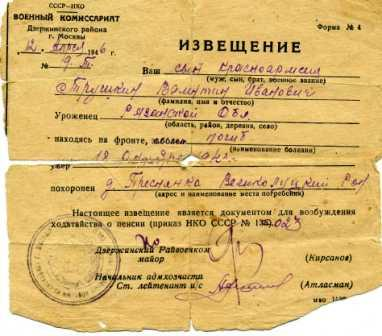 СССР—НКО
ВОЕННЫЙ КОМИССАРИАТ
Дзержинского района
г. Москвы
Форма № 4
2 1946 г.
№ 9
ИЗВЕЩЕНИЕ
Ваш сын красноармеец
(муж, сын, брат, военное звание)
Трушкин Валентин Иванович
(фамилия, имя и отчество)
Уроженец Рязанской Обл.
(область, район, деревня, село)
находясь на фронте, погиб
(наименование болезни)
умер 18 1942
похоронен д. Пресნянка Великолуцкий Р-он
(адрес и наименование места погребения)
Настоящее извещение является документом для возбуждения
ходатайства о пенсии (приказ НКО СССР № 023
Дзержинский Райвоенком
майор (Кирсанов)
Начальник админхозчасти
Ст. лейтенант и/с (Атласман)